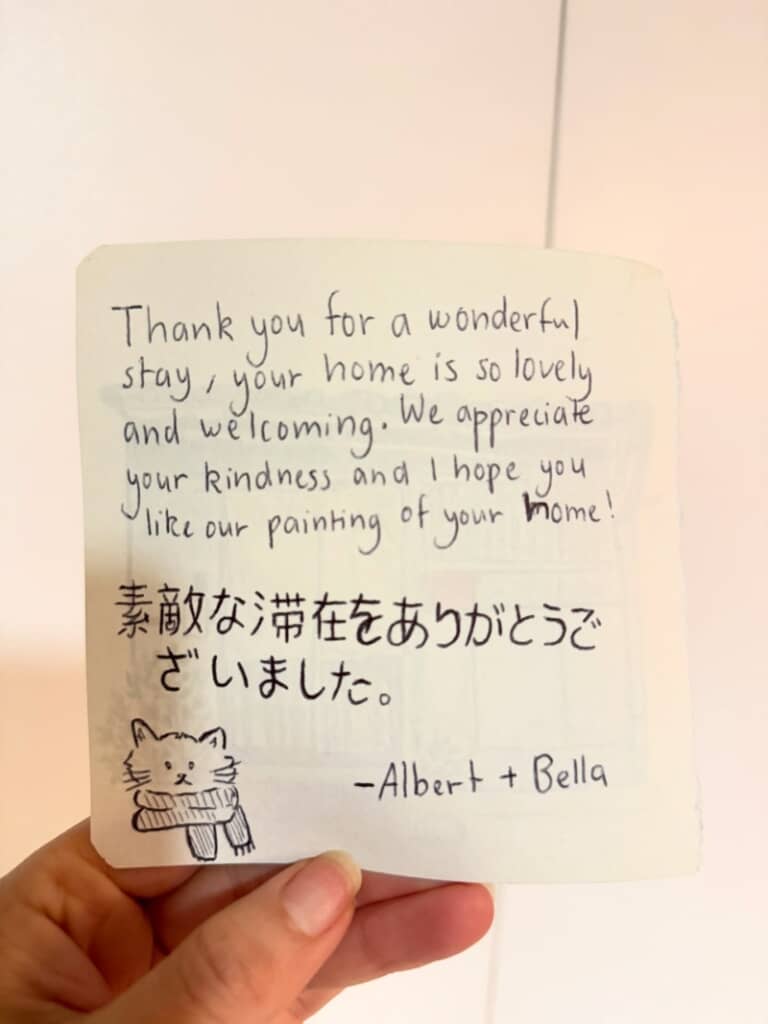 Thank you for a wonderful
stay, your home is so lovely
and welcoming. We appreciate
your kindness and I hope you
like our painting of your home!
素敵な滞在をありがとうご
ざいました。
-Albert + Bella